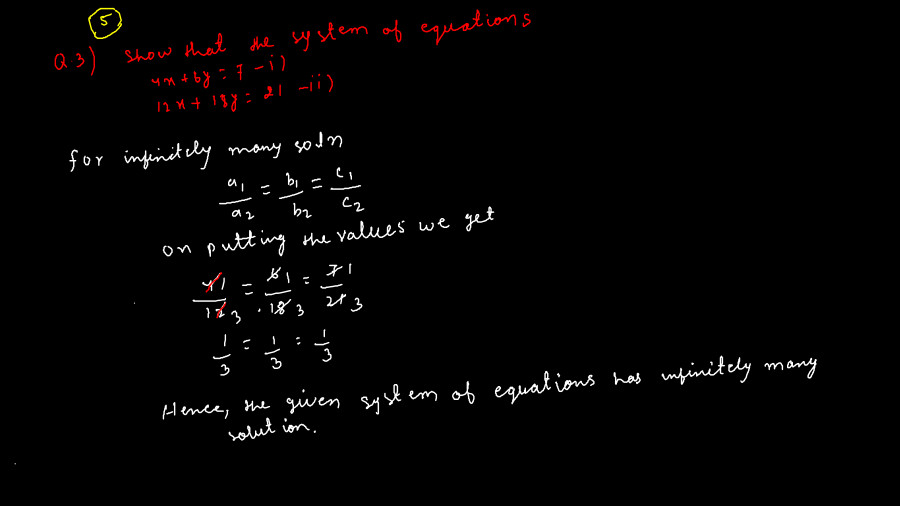 5
Q.3) Show that the system of equations
4x + 6y = 7 - i)
12x + 18y = 21 - ii)
for infinitely many soln
a1/a2 = b1/b2 = c1/c2
on putting the values we get
4 1/12 3 = 6 1/18 3 = 7 1/21 3
1/3 = 1/3 = 1/3
Hence, the given system of equations has infinitely many
solution.